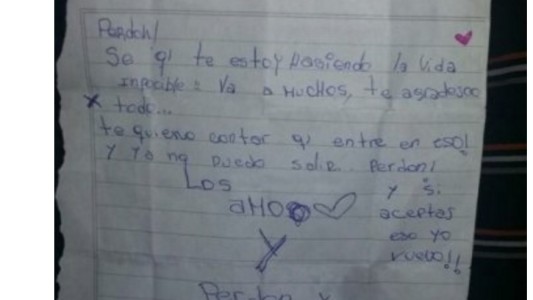 Perdon!
Se q' te estoy hasiendo la vida
inpocible = Va a MUCHOS, te agradesco
x todo...
te quiero contar q' entre en eso!
y yo no puedo salir. Perdon!
LOS
aMO
y si
aceptas
eso yo
vuelvo!!
Y
Perdon